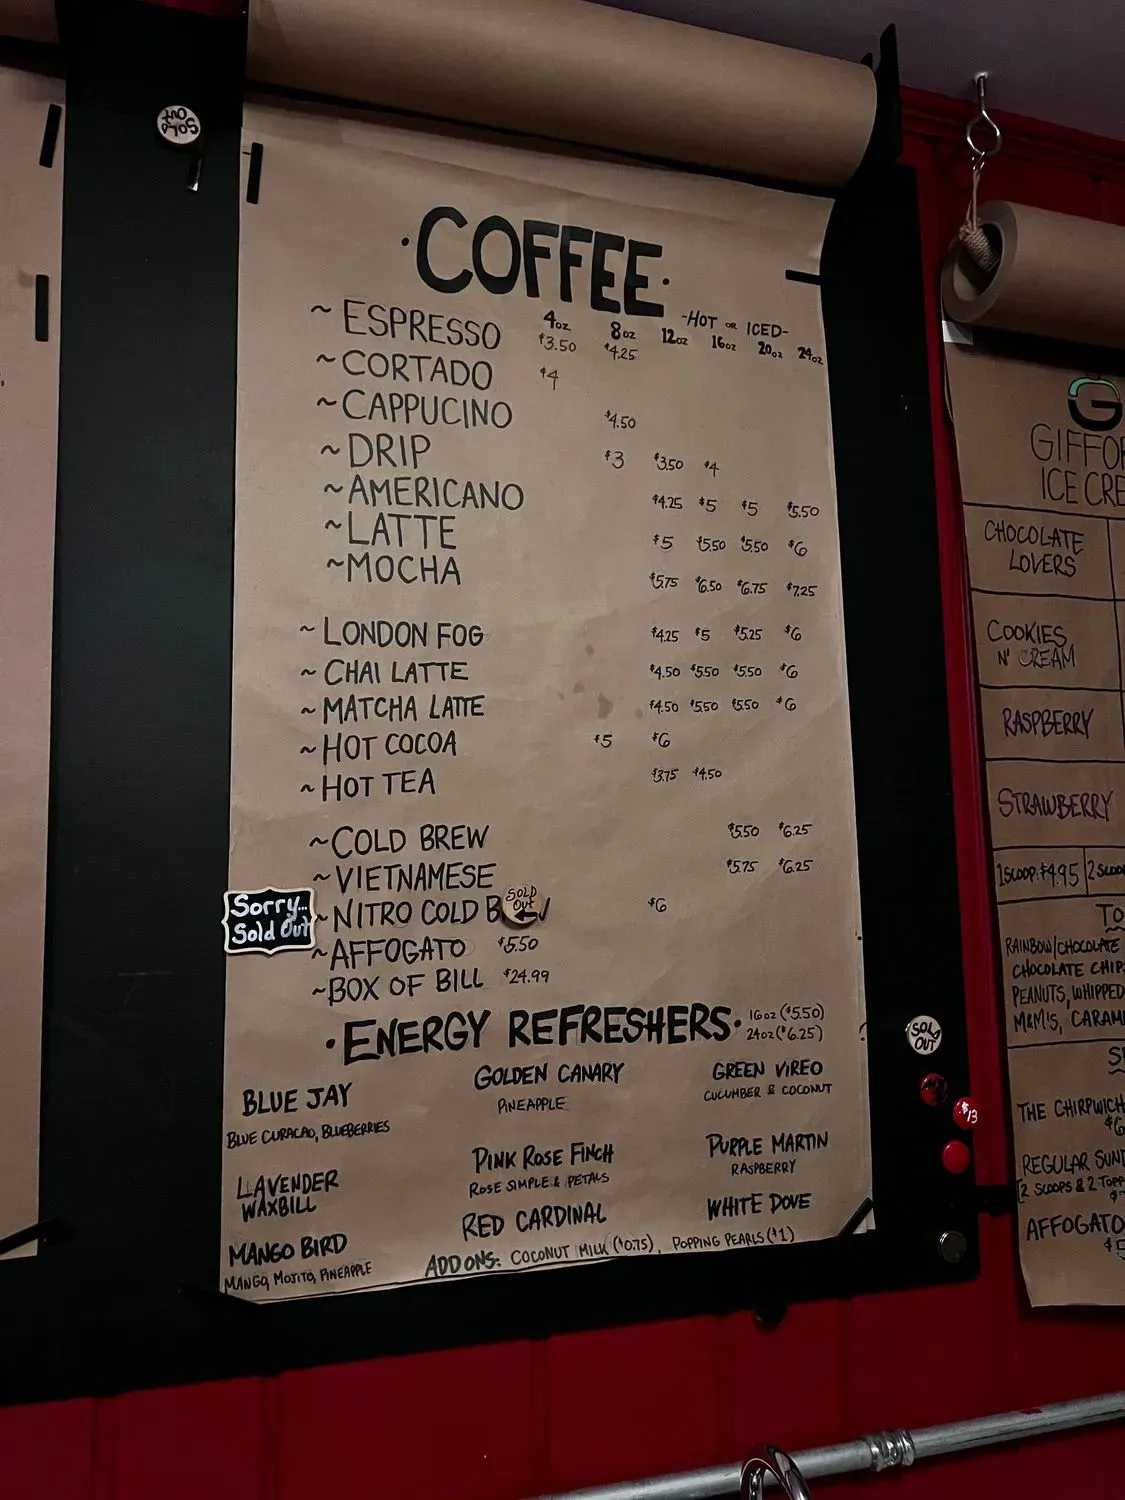 SOLD OUT
·COFFEE·
4oz 8oz -HOT OR ICED-
12oz 16oz 20oz 24oz
~ESPRESSO $3.50 $4.25
~CORTADO $4
~CAPPUCINO $4.50
~DRIP $3 $3.50 $4
~AMERICANO $4.25 $5 $5 $5.50
~LATTE $5 $5.50 $5.50 $6
~MOCHA $5.75 $6.50 $6.75 $7.25
~LONDON FOG $4.25 $5 $5.25 $6
~CHAI LATTE $4.50 $5.50 $5.50 $6
~MATCHA LATTE $4.50 $5.50 $5.50 $6
~HOT COCOA $5 $6
~HOT TEA $3.75 $4.50
~COLD BREW $5.50 $6.25
~VIETNAMESE $5.75 $6.25
Sorry...
Sold Out
~NITRO COLD $6
SOLD OUT
~AFFOGATO $5.50
~BOX OF BILL $24.99
·ENERGY REFRESHERS· 16oz ($5.50)
24oz ($6.25)
BLUE JAY
BLUE CURACAO, BLUEBERRIES
GOLDEN CANARY
PINEAPPLE
GREEN VIREO
CUCUMBER & COCONUT
LAVENDER
WAXBILL
PINK ROSE FINCH
ROSE SIMPLE & PETALS
PURPLE MARTIN
RASPBERRY
MANGO BIRD
MANGO, MOJITO, PINEAPPLE
RED CARDINAL
WHITE DOVE
ADD ONS: COCONUT MILK ($0.75), POPPING PEARLS ($1)
SOLD OUT
$13
G
GIFFO
ICE CRE
CHOCOLATE
LOVERS
COOKIES
N' CREAM
RASPBERRY
STRAWBERRY
1 SCOOP: $4.95 2 SCOO
TO
RAINBOW/CHOCOLATE
CHOCOLATE CHIP
PEANUTS, WHIPPED
M&M!S, CARAM
S
THE CHIRPWICH
$6
REGULAR SUN
[2 SCOOPS & 2 TOPP
AFFOGATO
$5